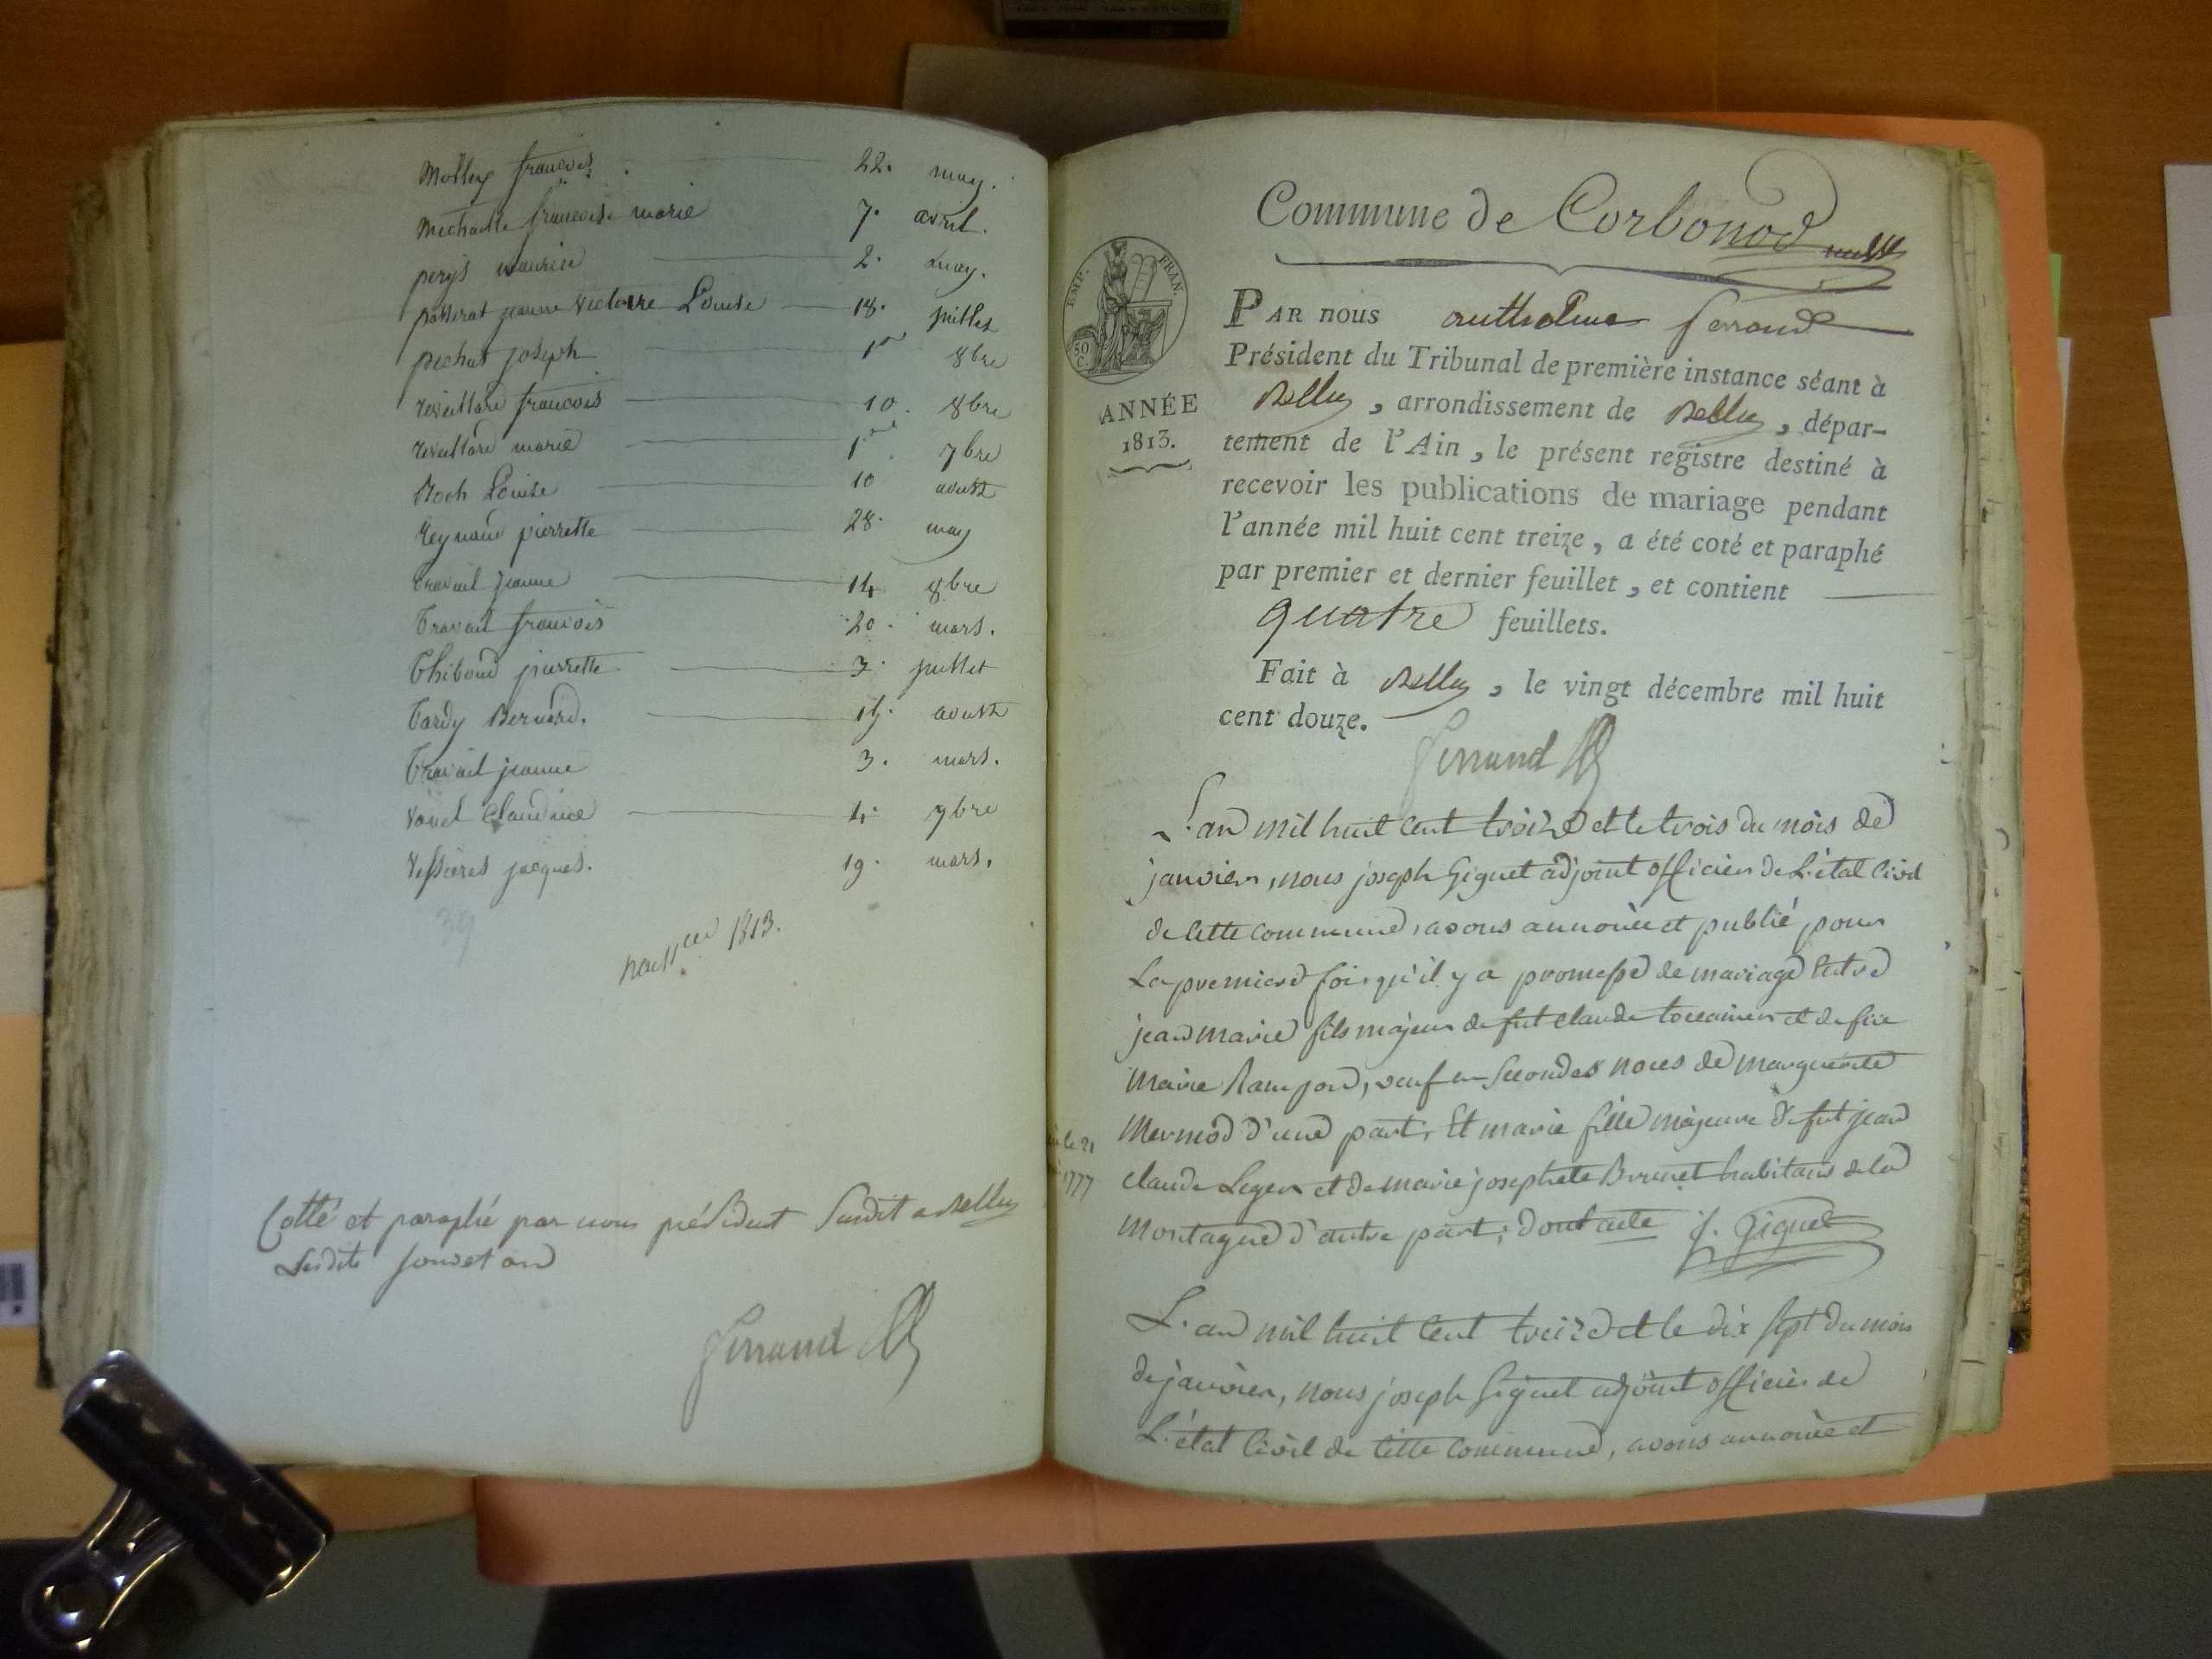 Molley françois 22. may.
Michaille françoise marie 7. avril.
perys maurice 2. may.
passerat jeanne Victoire Louise 18. juillet
pechat joseph 1er 8bre
revillard françois 10. 8bre
revillard marie 1er 7bre
Roch Louise 10 aoust
reynaud pierrette 28. may
travail jeanne 14 8bre
travail françois 20. mars.
thiboud pierrette 3. juillet
tardy Bernard. 15. aoust
travail jeanne 3. mars.
Claudine 4. 9bre
Vessieres jacques. 19. mars.
39
naissces 1813.
Cotté et paraphé par nous président susdit a Belley
Lesdits jour et an
Ferrand
Commune de Corbonod
EMP. FRAN.
50 C.
ANNÉE
1813.
PAR nous anthelme ferrand
Président du Tribunal de première instance séant à
Belley, arrondissement de Belley, dépar-
tement de l'Ain, le présent registre destiné à
recevoir les publications de mariage pendant
l'année mil huit cent treize, a été coté et paraphé
par premier et dernier feuillet, et contient
quatre feuillets.
Fait à Belley, le vingt décembre mil huit
cent douze.
Ferrand
L'an mil huit cent treize et le trois du mois de
janvier, nous joseph Giguet adjoint officier de L'état Civil
de cette commune, avons annoncé et publié pour
La premiere fois qu'il y a promesse de mariage Entre
jean marie fils majeur de fut claude et de fue
Marie, veuf en secondes noces de marguerite
Mermod d'une part, Et marie fille majeure de fut jean
claude Leger et de marie josephete Brunet habitans de la
Montagne d'autre part; dont acte J. Giguet
le 21
1777
L'an mil huit cent treize et le dix sept du mois
de janvier, nous joseph Giguet adjoint officier de
L'état Civil de cette commune, avons annoncé et